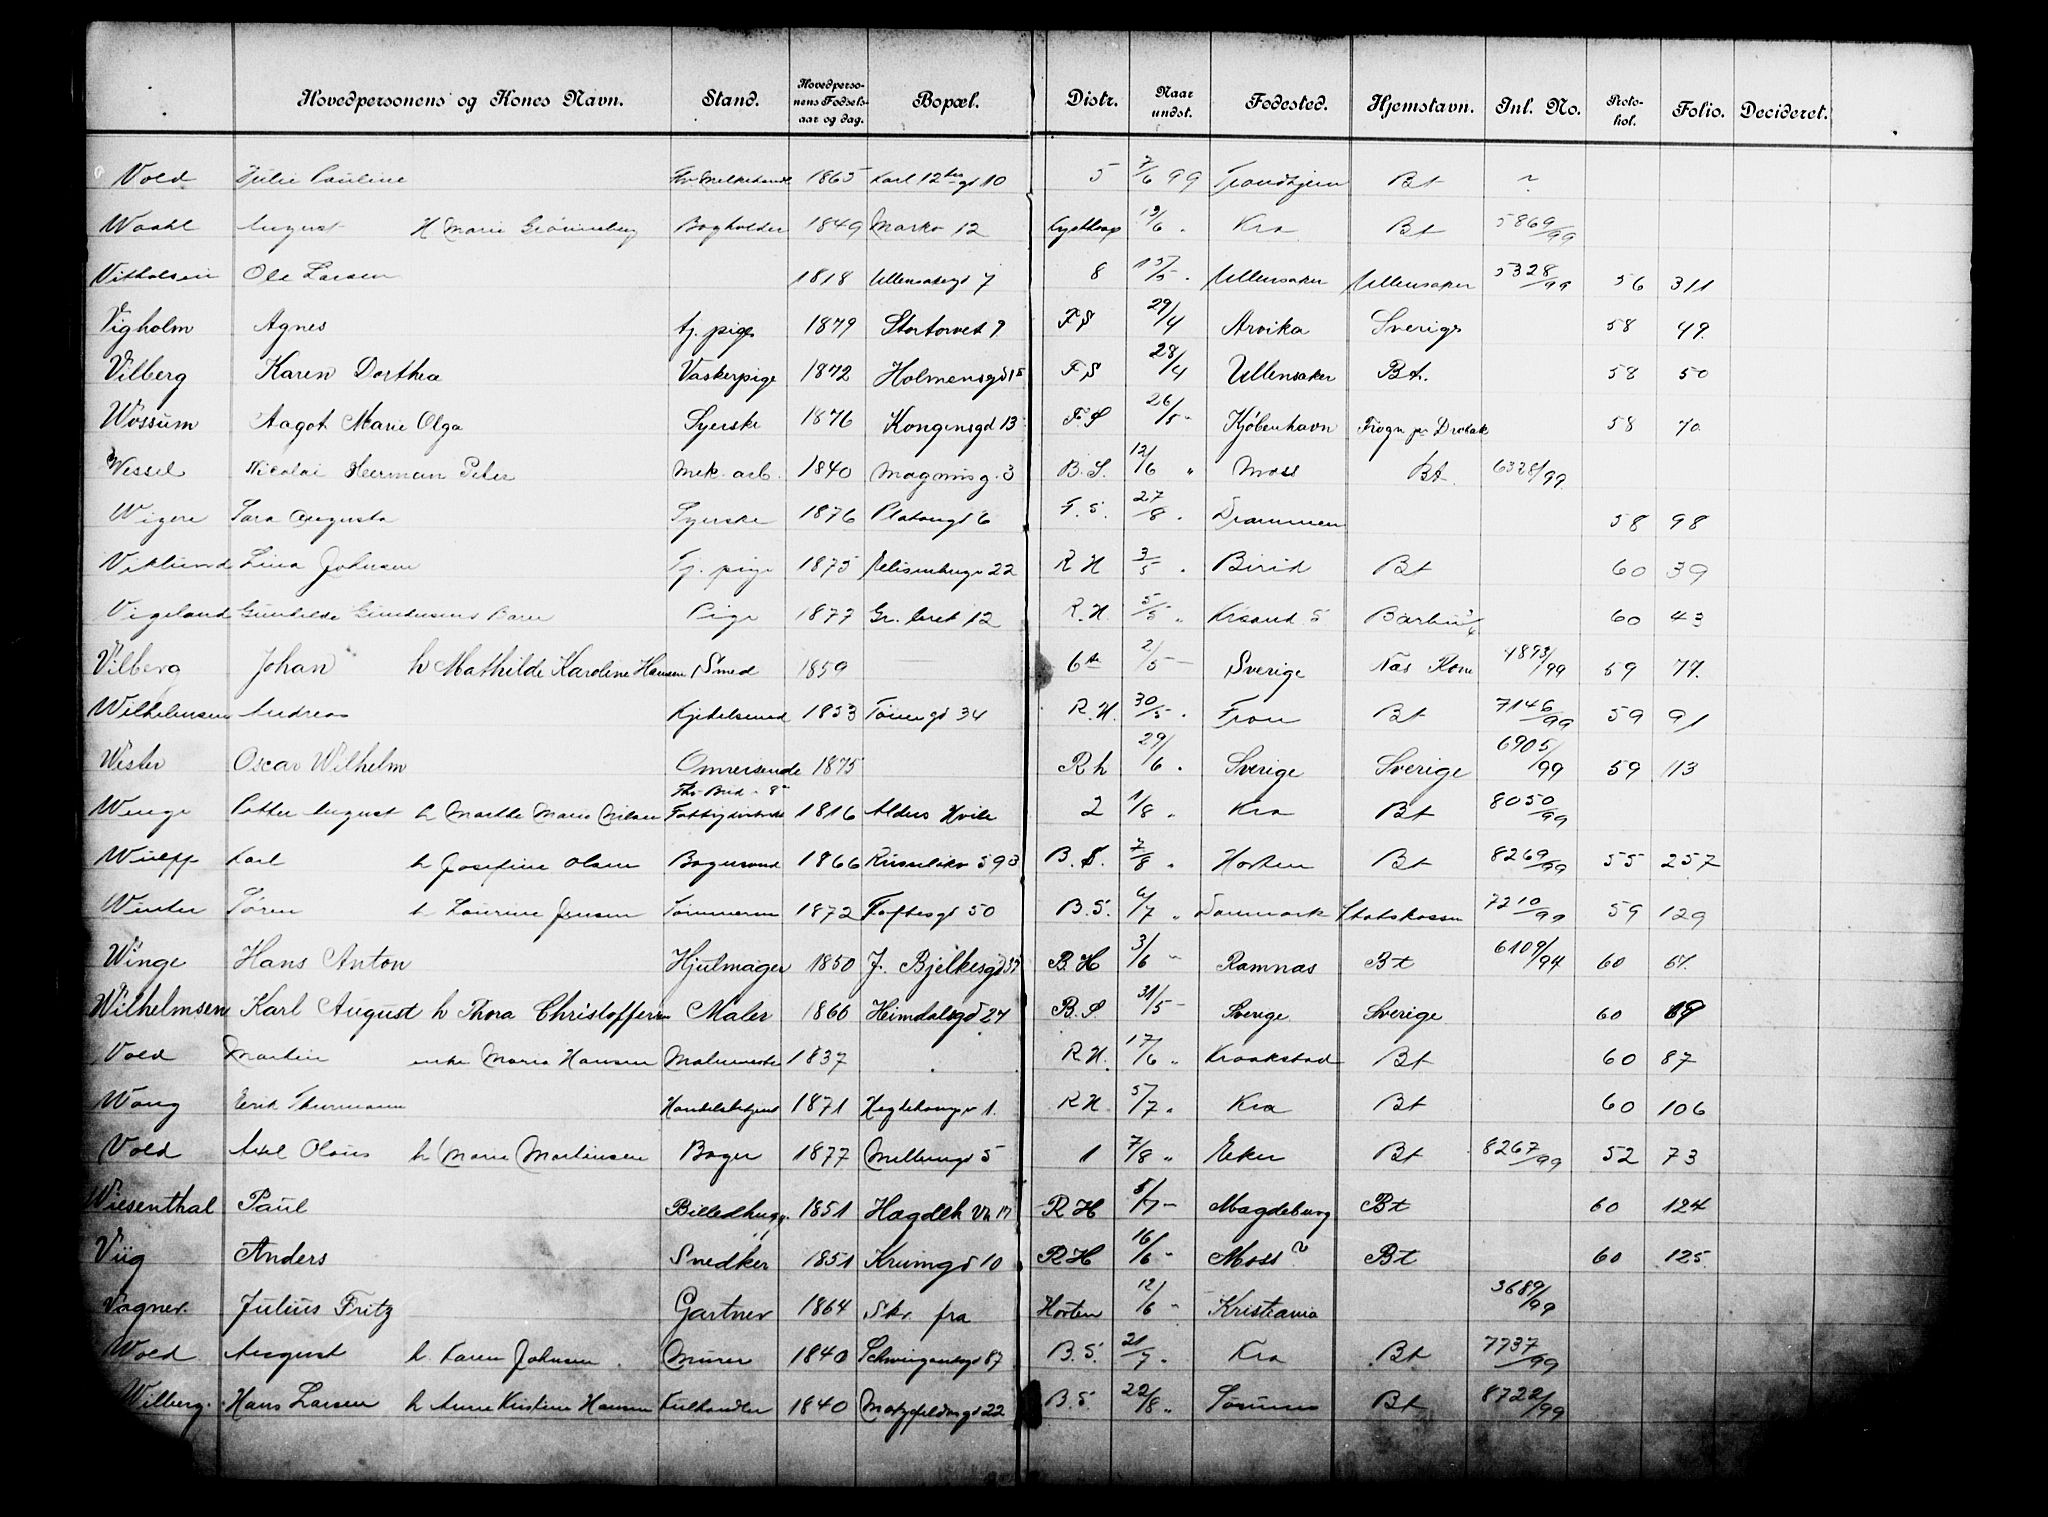 Hovedpersonens og Kones Navn. Stand. Hovedpersonens Fødselsaar og dag. Bopæl. Distr. Naar undst. Fødested. Hjemstavn. Inl. No. Protokol. Folio. Decideret.
Vold Julie Pauline 1865 Karl 12tes gd 10 5 7/6 99 Trondhjem Bt ?
Waahl August H Marie Bogholder 1849 Markv 12 13/6 Kra Bt 5869/99
Ole Larsen 1818 Ullensakergd 7 8 15/5 Ullensaker Ullensaker 5328/99 56 311
Vigholm Agnes tj. pige 1879 Stortorvet 7. F S 29/4 Arvika Sverige 58 49.
Vilberg Karen Dorthea Vaskerpige 1872 Holmensgd 15 F S 28/4 Ullensaker Bt. 58 50
Wossum Aagot Marie Olga Syerske 1876 Kongensgd 13 F S 26/5 " Kjøbenhavn Frogn pr Drøbak 58 70.
Wessel Nicolai Herman Peter Mek. arb. 1840 Magnusg. 3 B. S. 12/6 " Moss Bt. 6328/99
Sara Augusta Syerske 1876 Platousgd 6 F. S. 27/8 . Drammen 58 98
Viklund Lina Johnsen Tj. pige 1875 22 R H 3/5 . Birid Bt 60 39
Vigeland Gunhilde Pige 1877 Gr. leret 12 R. H. 5/5 " Krsand S 60 43
Vilberg Johan h Mathilde Karoline Hansen Smed 1859 6te 2/5 - Sverige Næs Rom 4893/99 59 77.
Wilhelmsen Andreas Kjedelsmed 1853 Tøiengd 34 R. H. 30/5 . Fron Bt 7146/99 59 91
Wister Oscar Wilhelm Omreisende 1875 R h 29/6 . Sverige Sverige 6905/99 59 113
Winge Petter August h Marthe Marie Nilsen 1816 Alders Hvile 2 1/8 " Kra Bt 8050/99
Wulff Karl h Josefine Olsen Bagersvend 1866 59 B. S. 7/8 " Horten Bt 8269/99 55 257
Winter Søren h Laurine Jensen Tømmerm 1872 Toftesgd 50 B. S. 6/7 " Danmark Statskassen 7210/99 59 129
Winge Hans Anton Hjulmager 1850 J. Bjelkesgd 37 B. H 3/6 " Ramnæs Bt 6109/94 60 67.
Wilhelmsen Karl August h Thora Christoffersen Maler 1860 Heimdalsgd 27 B. S 31/5 - Sverige Sverige 60 69
Vold Martin enke Maria Hansen 1837 R H. 17/6 " Kraakstad Bt 60 87
Wang Erik Thurmann Handelsbetjent 1871 Hegdehaugsv 1. R H. 5/7 " Kra Bt 60 106
Vold Axel Olaus h Marie Martinsen Bager 1877 Møllergd 5 1 7/8 " Eker Bt 8267/99 52 73
Wiesenthal Paul Billedhugg. 1851 Hægdeh Vn 17 R H 5/7 - Magdeburg Bt 60 124
Viig Anders Snedker 1851 Krumgd 10 R H 16/6 - Moss? Bt 60 125
Vagner. Julius Fritz Gartner 1864 Skr. fra Horten 12/6 - Kristiania 3689/99
Wold August h. Karen Johnsen. Murer 1840 Schweigaardsgd 87 B. S. 21/7 . Kra Bt 7737/99
Wilberg. Hans Larsen h Anne Kristine Hansen Kulhandler 1840 Motzfeldtsgd 22 B. S. 22/8 " Sørum Bt 8722/99